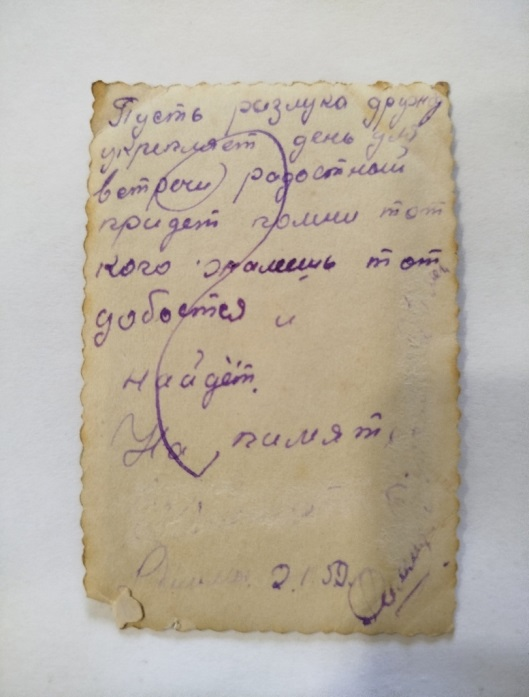 Пусть разлука дружбу
укрепляет день для
встречи радостный
придет помни тот
кого знаешь тот
добьется и
найдёт.
На память
2.I.59